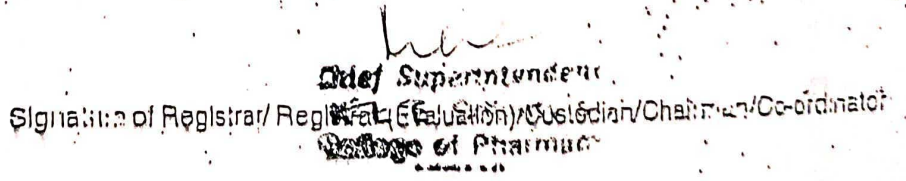 Chief Superintendent
Signature of Registrar/ Registrar (Evaluation)/Custodian/Chairman/Co-ordinator
College of Pharmacy